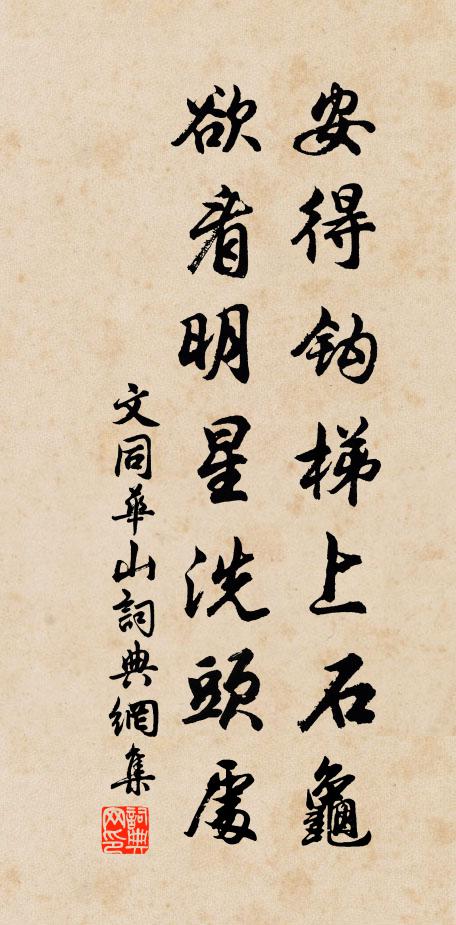 安得鈎梯上石龜
欲看明星洗頭處
文同華山詞典網集
詞典网印